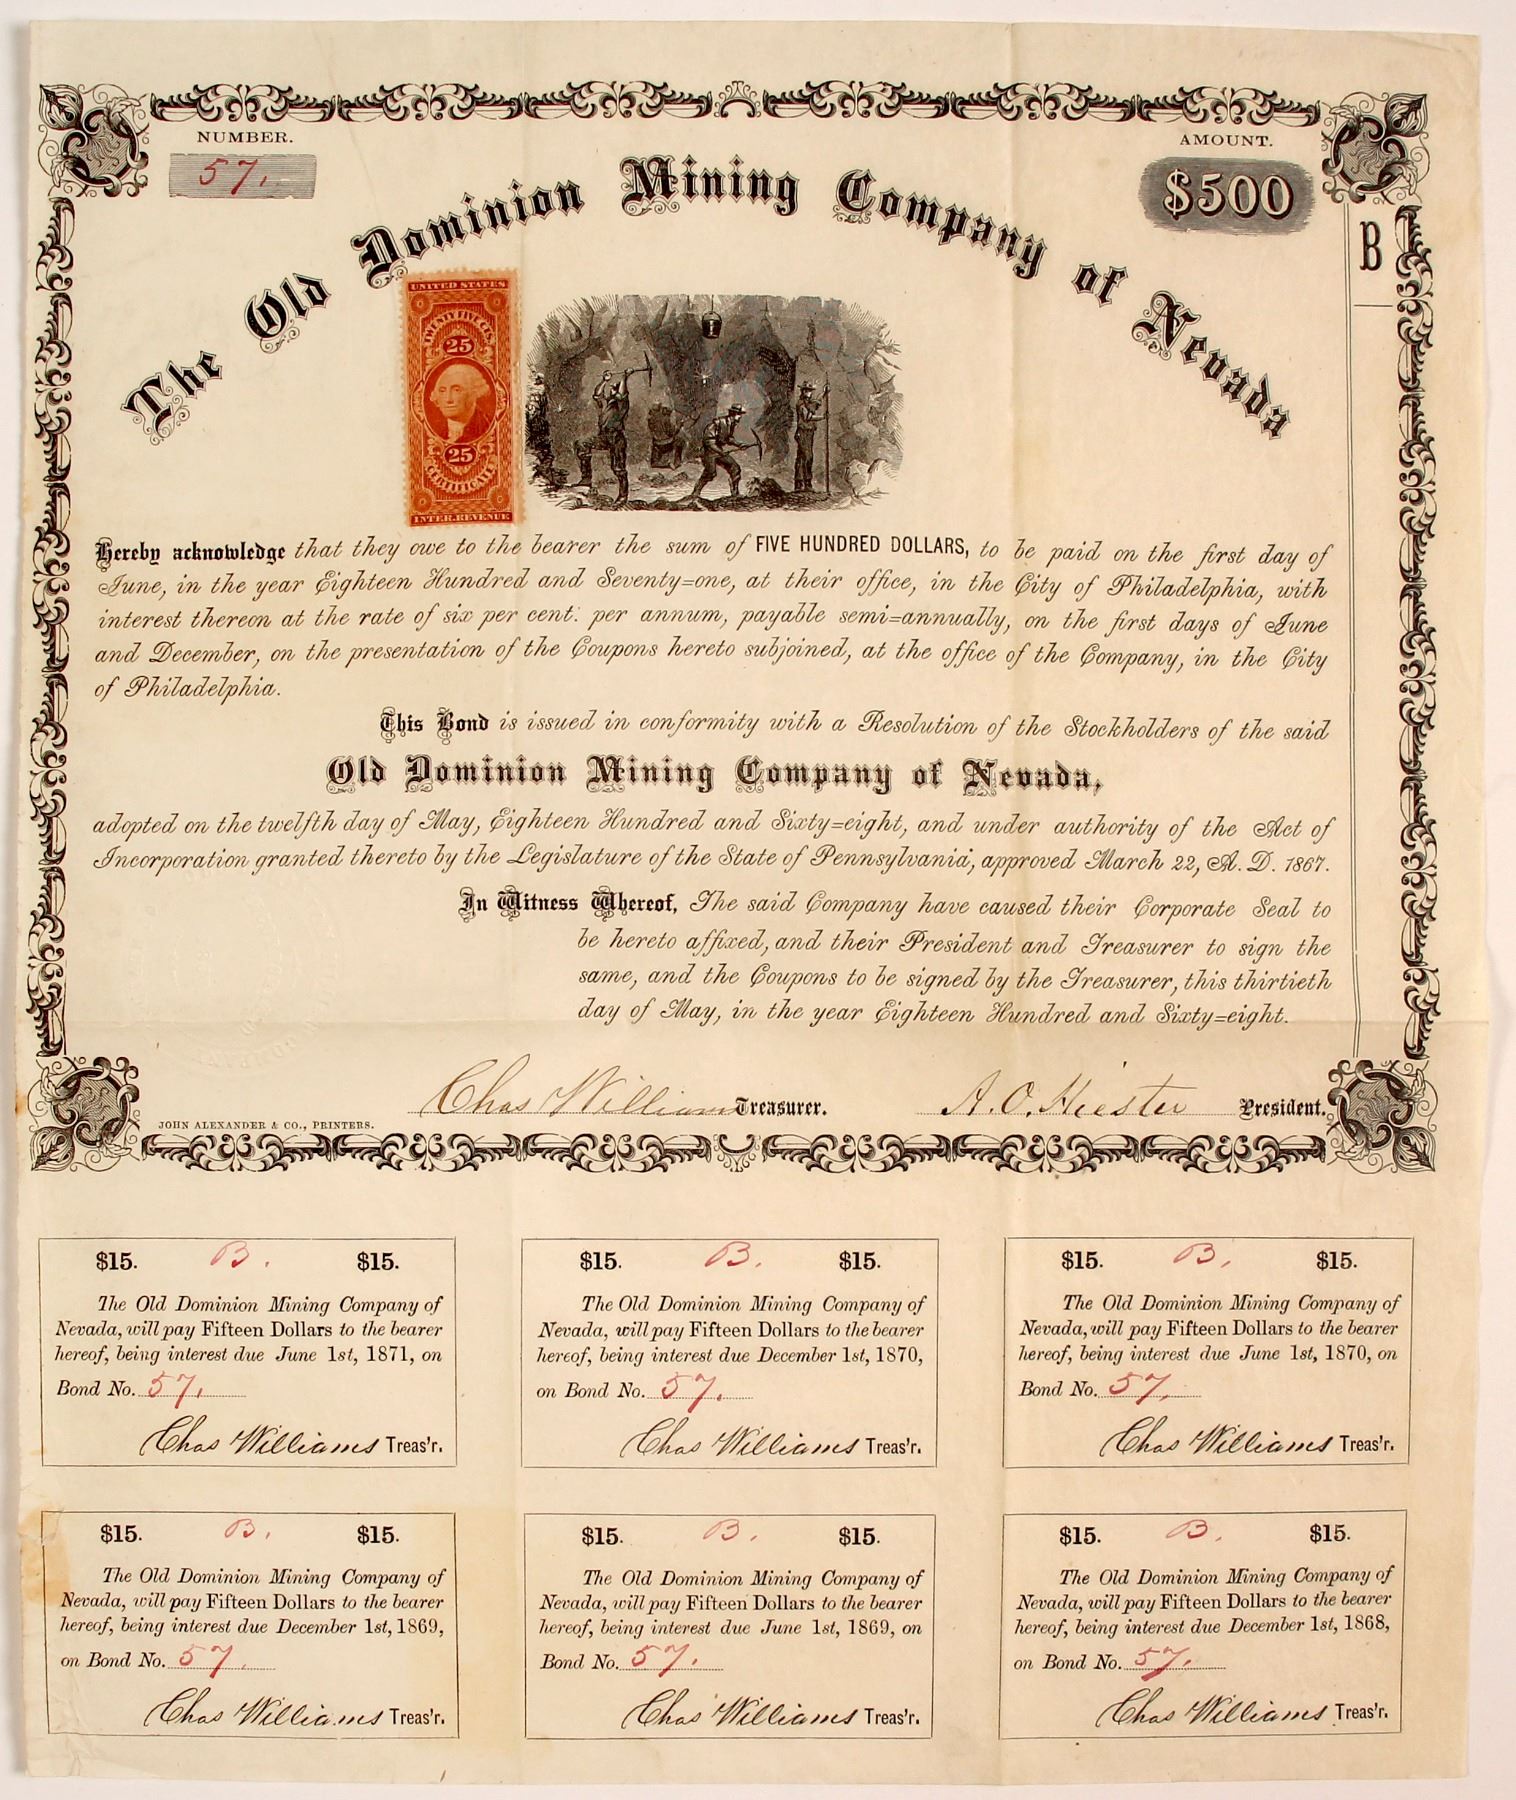 NUMBER.
57.
AMOUNT.
$500
B
The Old Dominion Mining Company of Nevada
UNITED STATES
TWENTY FIVE CTS.
25
25
CERTIFICATE
INTER. REVENUE
Hereby acknowledge that they owe to the bearer the sum of FIVE HUNDRED DOLLARS, to be paid on the first day of
June, in the year Eighteen Hundred and Seventy=one, at their office, in the City of Philadelphia, with
interest thereon at the rate of six per cent. per annum, payable semi=annually, on the first days of June
and December, on the presentation of the Coupons hereto subjoined, at the office of the Company, in the City
of Philadelphia.
This Bond is issued in conformity with a Resolution of the Stockholders of the said
Old Dominion Mining Company of Nevada,
adopted on the twelfth day of May, Eighteen Hundred and Sixty=eight, and under authority of the Act of
Incorporation granted thereto by the Legislature of the State of Pennsylvania, approved March 22, A. D. 1867.
In Witness Whereof, The said Company have caused their Corporate Seal to
be hereto affixed, and their President and Treasurer to sign the
same, and the Coupons to be signed by the Treasurer, this thirtieth
day of May, in the year Eighteen Hundred and Sixty=eight.
Chas Williams Treasurer. A. O. Hiester President.
JOHN ALEXANDER & CO., PRINTERS.
$15. B. $15.
The Old Dominion Mining Company of
Nevada, will pay Fifteen Dollars to the bearer
hereof, being interest due June 1st, 1871, on
Bond No. 57.
Chas Williams Treas'r.
$15. B. $15.
The Old Dominion Mining Company of
Nevada, will pay Fifteen Dollars to the bearer
hereof, being interest due December 1st, 1870,
on Bond No. 57.
Chas Williams Treas'r.
$15. B. $15.
The Old Dominion Mining Company of
Nevada, will pay Fifteen Dollars to the bearer
hereof, being interest due June 1st, 1870, on
Bond No. 57.
Chas Williams Treas'r.
$15. B. $15.
The Old Dominion Mining Company of
Nevada, will pay Fifteen Dollars to the bearer
hereof, being interest due December 1st, 1869,
on Bond No. 57.
Chas Williams Treas'r.
$15. B. $15.
The Old Dominion Mining Company of
Nevada, will pay Fifteen Dollars to the bearer
hereof, being interest due June 1st, 1869, on
Bond No. 57.
Chas Williams Treas'r.
$15. B. $15.
The Old Dominion Mining Company of
Nevada, will pay Fifteen Dollars to the bearer
hereof, being interest due December 1st, 1868,
on Bond No. 57.
Chas Williams Treas'r.